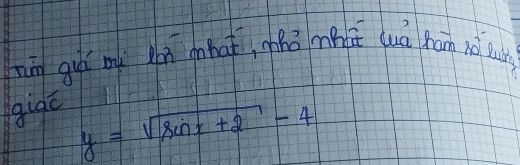 Tìm giá trị lớn nhất, nhỏ nhất của hàm số lượng
giác
y = √(sin x + 2) - 4